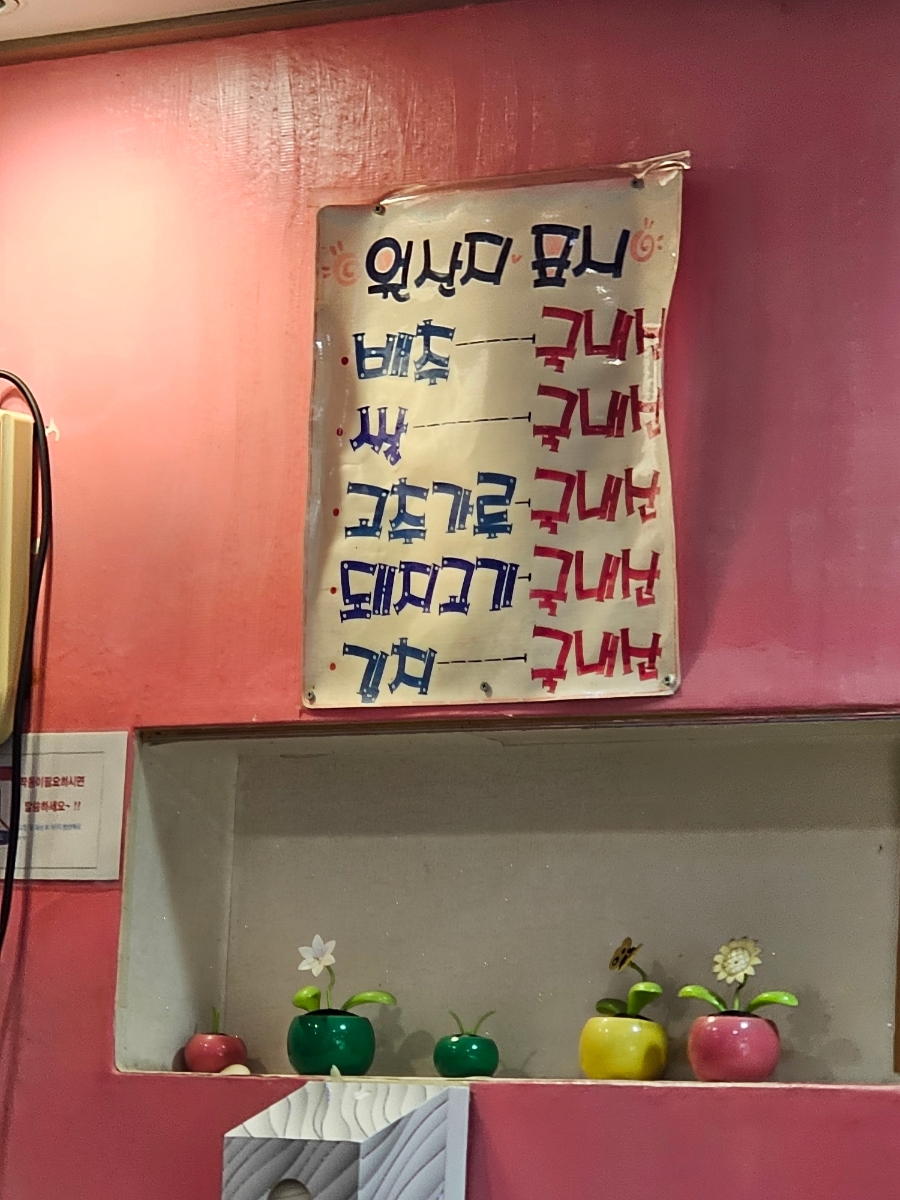 원산지 표시
배추 국내산
쌀 국내산
고추가루 국내산
돼지고기 국내산
김치 국내산
필요하시면
말씀하세요~ !!